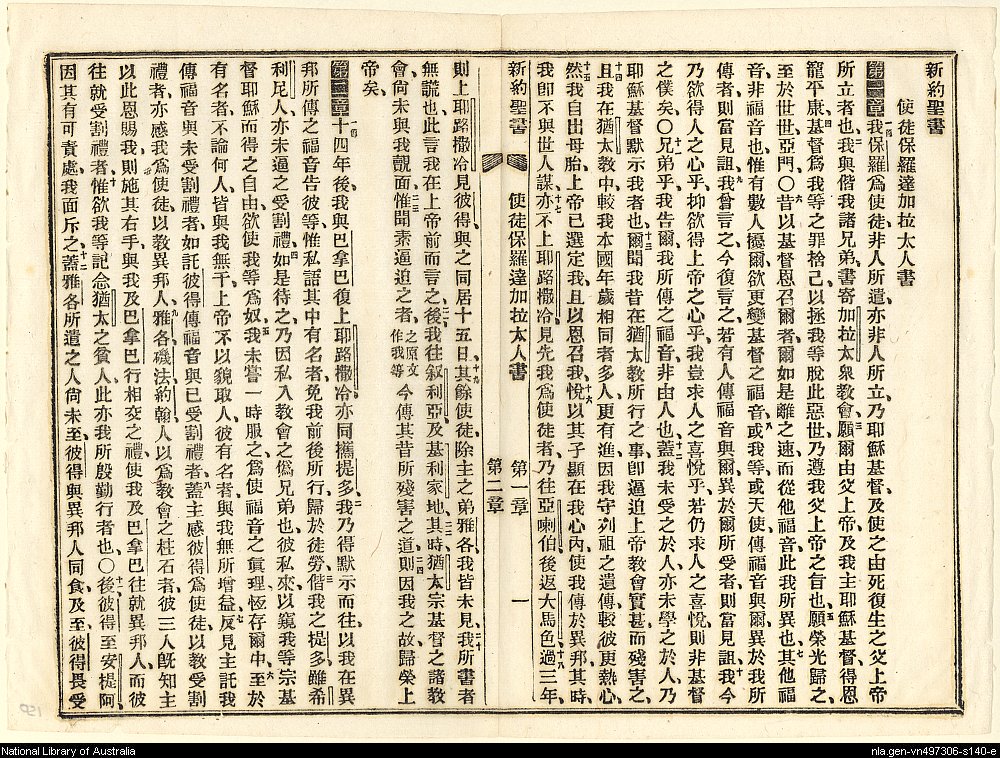 新約聖書
使徒保羅達加拉太人書
第一章一節我保羅爲使徒、非人所遣、亦非人所立、乃耶穌基督、及使之由死復生之父上帝
所立者也、二我與偕我諸兄弟、書寄加拉太衆教會、三願爾由父上帝、及我主耶穌基督、得恩
寵平康、四基督爲我等之罪捨己、以拯我等脫此惡世、乃遵我父上帝之旨也、五願榮光歸之、
至於世世、亞門、〇六昔以基督恩召爾者、爾如是離之速、而從他福音、此我所異也、七其他福
音、非福音也、惟有數人擾爾、欲更變基督之福音、八或我等、或天使、傳福音與爾、異於我所
傳者、則當見詛、九我曾言之、今復言之、若有人傳福音與爾、異於爾所受者、則當見詛、十我今
乃欲得人之心乎、抑欲得上帝之心乎、我豈求人之喜悅乎、若仍求人之喜悅、則非基督
之僕矣、〇十一兄弟乎、我告爾、我所傳之福音、非由人也、十二蓋我未受之於人、亦未學之於人、乃
耶穌基督默示我者也、十三爾聞我昔在猶太教所行之事、卽逼迫上帝教會實甚、而殘害之、
十四且我在猶太教中、較我本國年歲相同者多人、更有進、因我守列祖之遺傳、較彼更熱心、
十五然我自出母胎、上帝已選定我、且以恩召我、十六悅以其子顯在我心內、使我傳於異邦、其時
我卽不與世人謀、十七亦不上耶路撒冷、見先我爲使徒者、乃往亞喇伯、後返大馬色、十八過三年、
新約聖書 使徒保羅達加拉太人書 第一章 一
第二章
則上耶路撒冷見彼得、與之同居十五日、十九其餘使徒、除主之弟雅各、我皆未見、二十我所書者
無謊也、此言我在上帝前而言之、二一後我往叙利亞、及基利家地、二二其時猶太宗基督之諸教
會、尙未與我覿面、二三惟聞素逼迫之者、之原文作我等今傳其昔所殘害之道、二四則因我之故、歸榮上
帝矣、
第二章一節十四年後、我與巴拿巴復上耶路撒冷、亦同攜提多、二我乃得默示而往、以我在異
邦所傳之福音告彼等、惟私語其中有名者、免我前後所行、歸於徒勞、三偕我之提多、雖希
利尼人、亦未逼之受割禮、四如是待之、乃因私入教會之僞兄弟也、彼私來、以窺我等宗基
督耶穌而得之自由、欲使我等爲奴、五我未嘗一時服之、爲使福音之眞理恆存爾中、六至於
有名者、不論何人、皆與我無干、上帝不以貌取人、彼有名者、與我無所增益、七反見主託我
傳福音與未受割禮者、如託彼得傳福音與已受割禮者、八蓋主感彼得爲使徒、以教受割
禮者、亦感我爲使徒、以教異邦人、九雅各、磯法、約翰、人以爲教會之柱石者、彼三人旣知主
以此恩賜我、則施其右手、與我及巴拿巴行相交之禮、使我及巴拿巴往就異邦人、而彼
往就受割禮者、十惟欲我等記念猶太之貧人、此亦我所殷勤行者也、〇十一後彼得至安提阿、
因其有可責處、我面斥之、十二蓋雅各所遣之人尙未至、彼得與異邦人同食、及至、彼得畏受
National Library of Australia
nla.gen-vn497306-s140-e